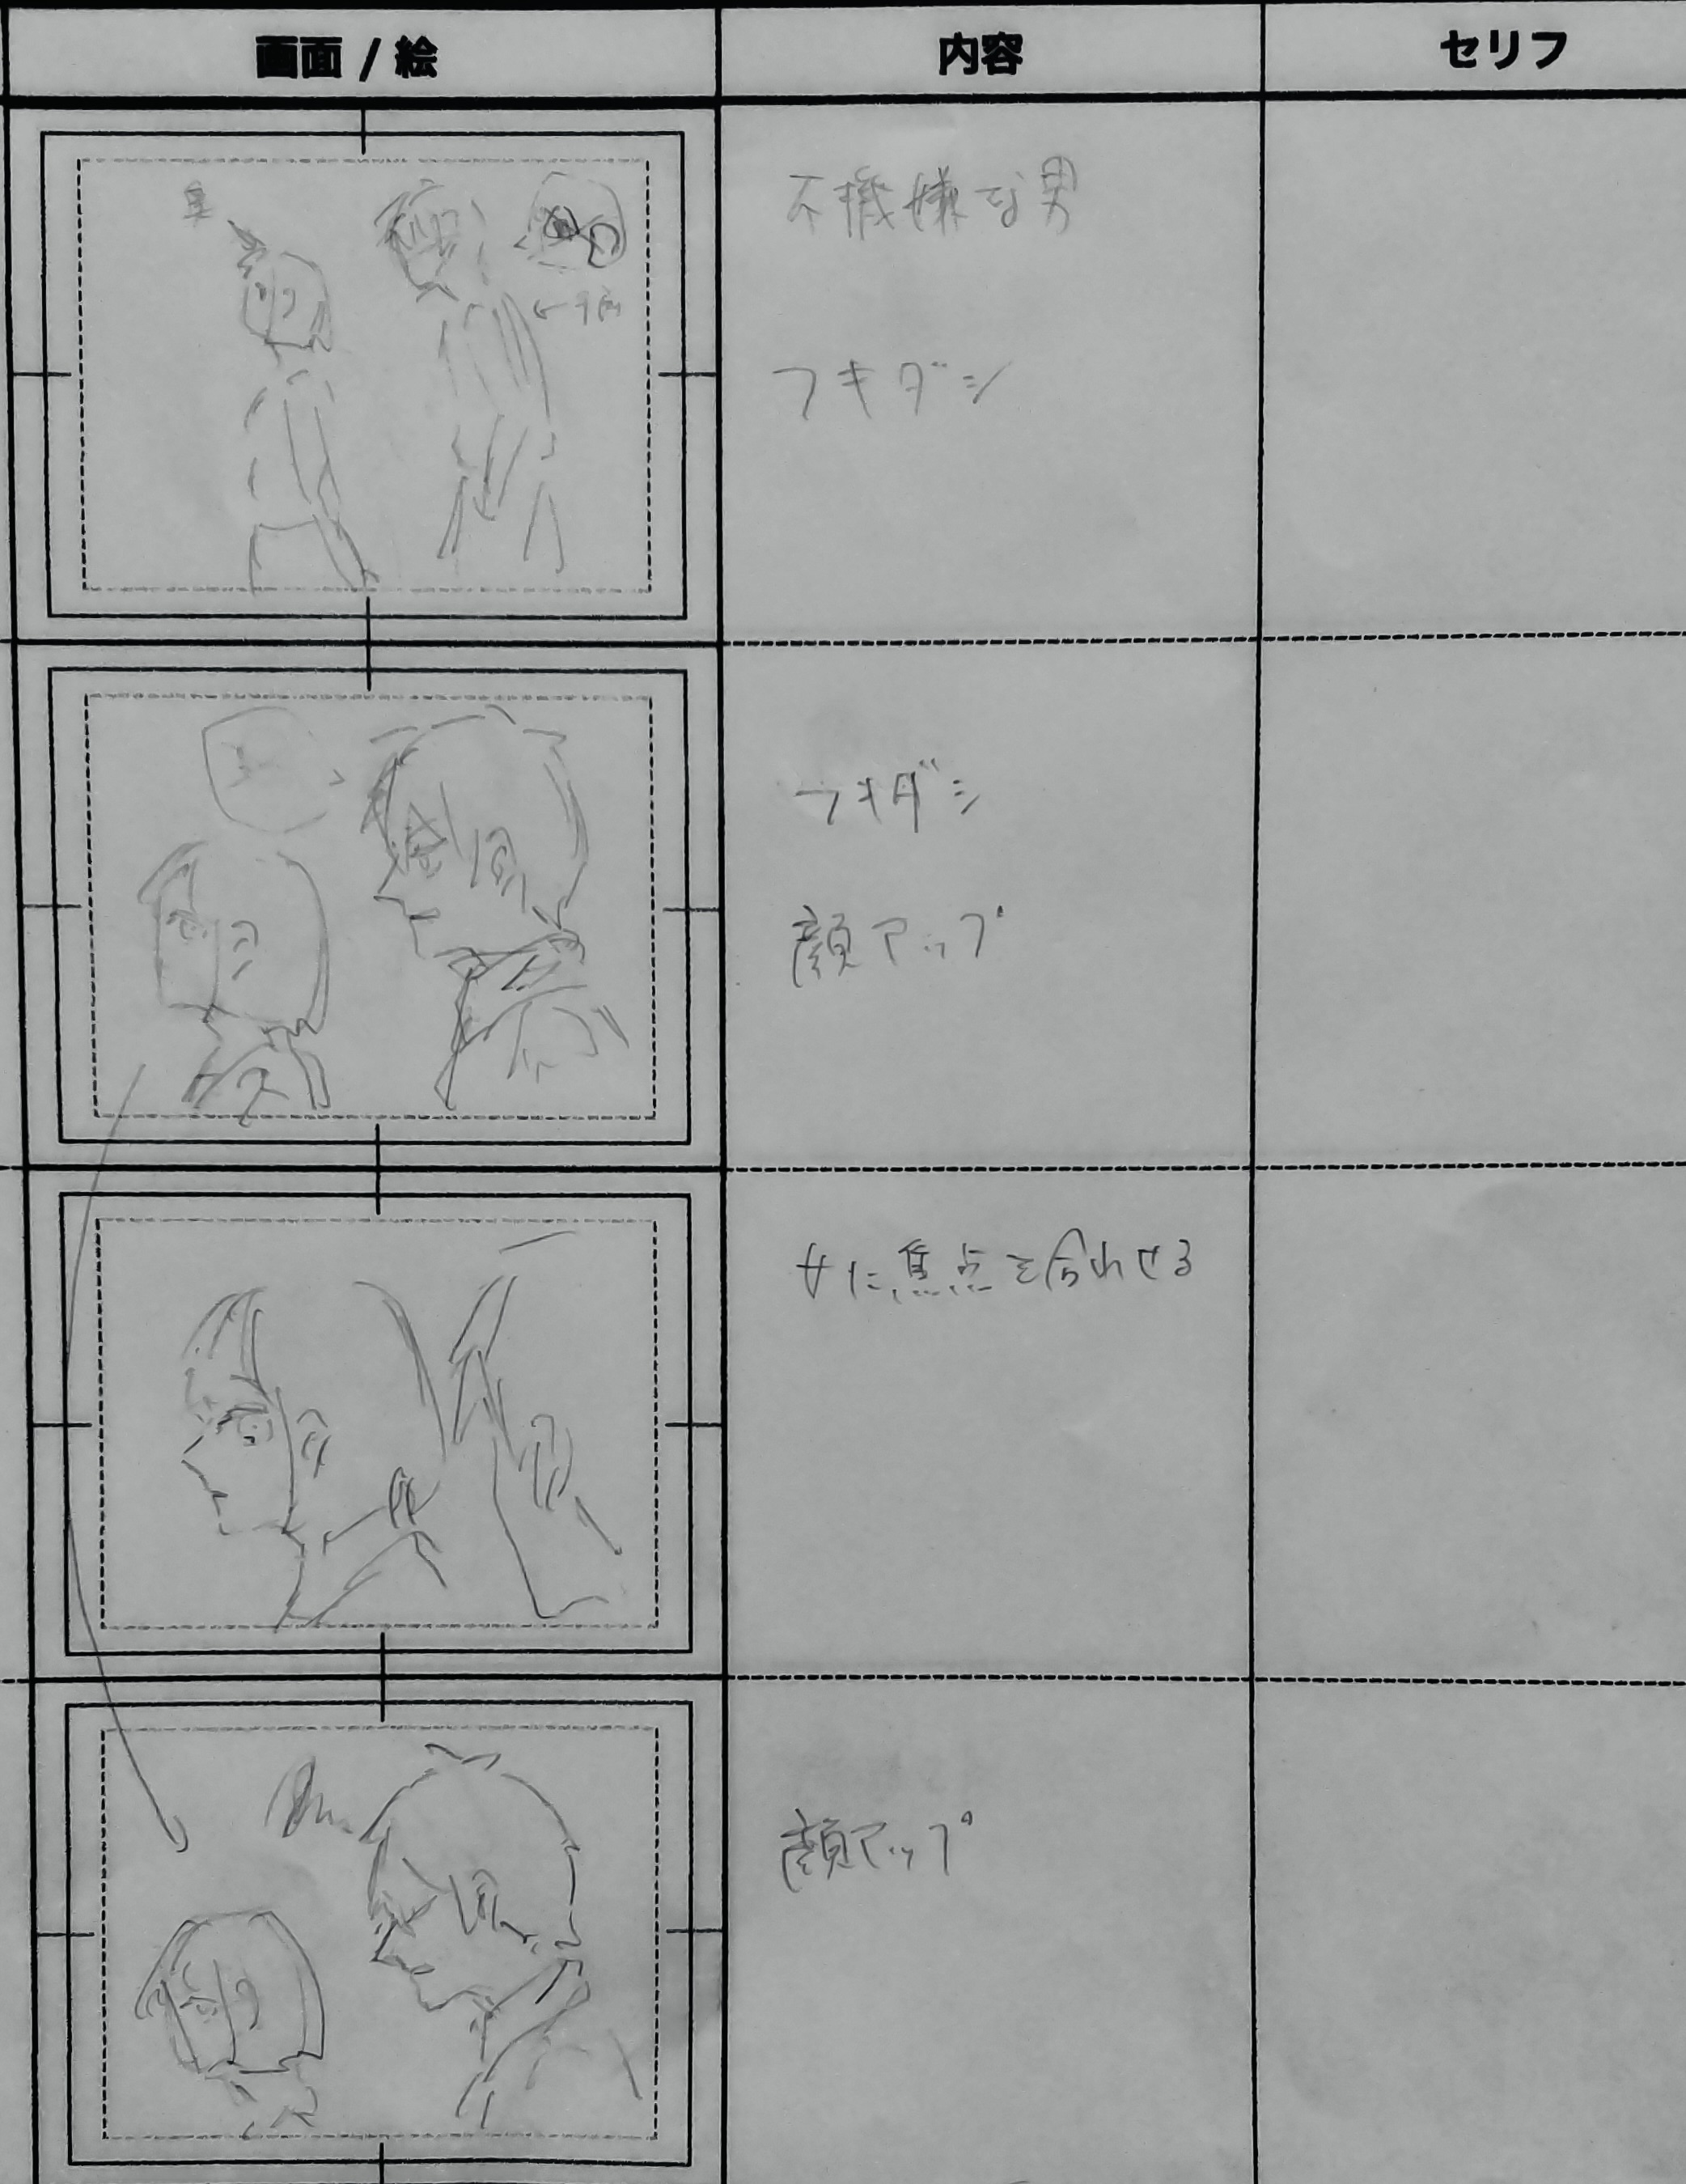 画面 / 絵
内容
セリフ
不機嫌な男
フキダシ
フキダシ
顔アップ
女に焦点を合わせる
顔アップ